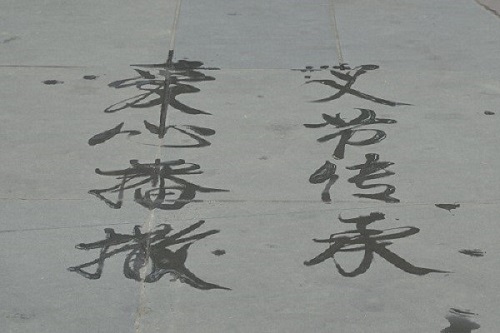 义节传承
爱心播撒